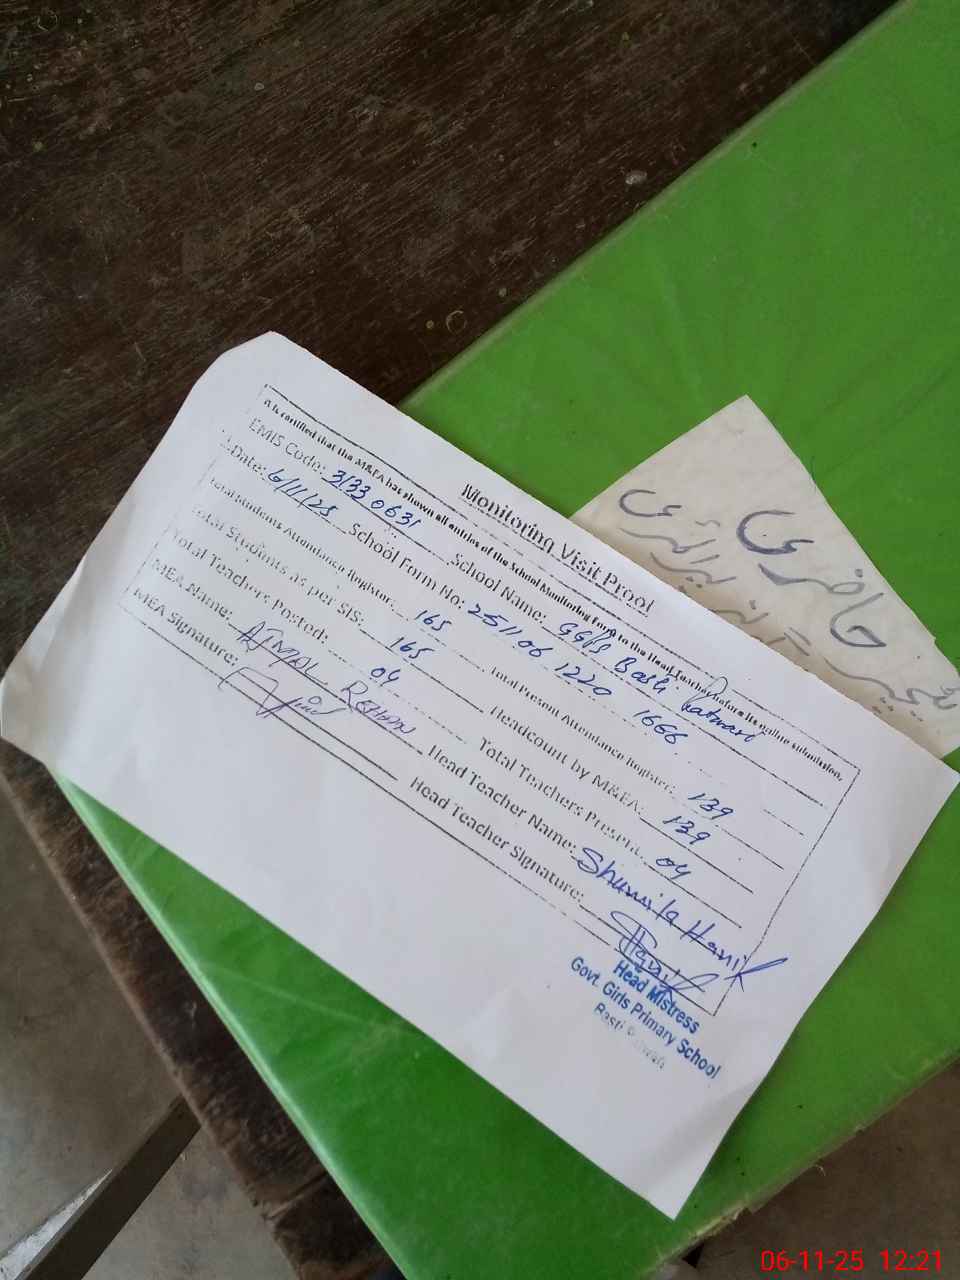 Monitoring Visit Proof
It is certified that the M&EA has shown all entries of the School Monitoring Form to the Head Teacher before its online submission.
EMIS Code: 31330631 School Name: GGPS Basti Patwari
Date: 6/11/25 School Form No: 251106 1220 1666
Total Students Attendance Register: 165 Total Present Attendance Register: 139
Total Students as per SIS: 165 Headcount by M&EA: 139
Total Teachers Posted: 04 Total Teachers Present: 04
MEA Name: AJMAL REHMAN Head Teacher Name: Shumila Hanif
MEA Signature: Head Teacher Signature:
Head Mistress
Govt. Girls Primary School
Basti
حاضری
06-11-25 12:21